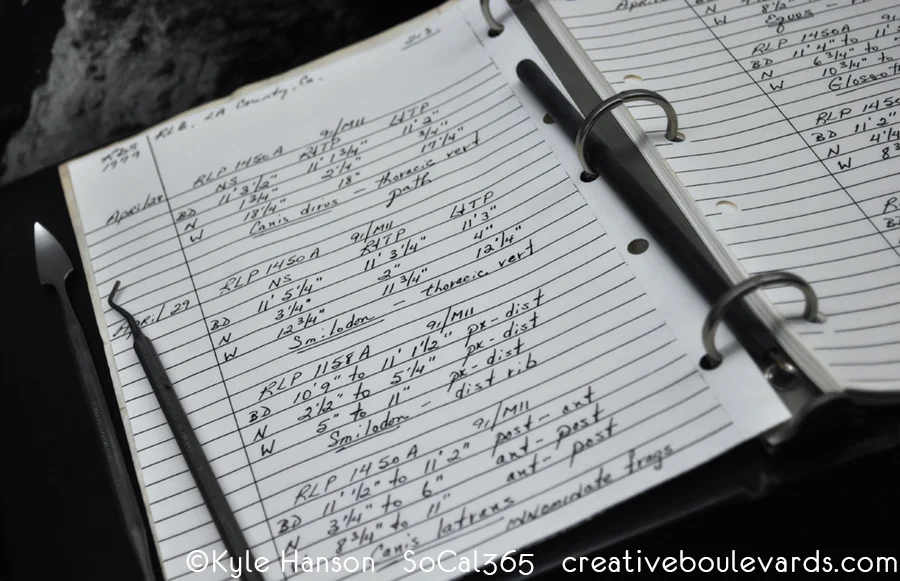 R.L.B. LA County, Ca.
1999
April 28
RLP 1450A 91/M11
NS RtTP LtTP
BD 11' 3 1/2" 11' 1 3/4" 11' 2"
N 1 3/4" 2 1/4" 3/4"
W 18 1/4" 18" 17 1/4"
Canis dirus - thoracic vert
path
April 29
RLP 1450A 91/M11
NS RtTP LtTP
BD 11' 5 1/4" 11' 3 1/4" 11' 3"
N 3/4" 2" 4"
W 12 3/4" 11 3/4" 12 1/4"
Smilodon - thoracic vert
RLP 1158A 91/M11
BD 10' 9" to 11' 1 1/2" px-dist
N 2 1/2" to 5 1/4" px-dist
W 5" to 11" px-dist
Smilodon - dist rib
RLP 1450A 91/M11
BD 11' 1/2" to 11' 2" post-ant
N 3 1/4" to 6" ant-post
W 8 3/4" to 11" ant-post
Canis latrans innominate frags
N 8 1/2"
W
Equus -
RLP 1450A 91
BD 11' 4" to 11'
N 6 3/4" to
W 10 3/4" to
Glossoth
RLP 1450
BD 11' 2"
N 4 1/4
W 8 3
©Kyle Hanson SoCal365 creativeboulevards.com